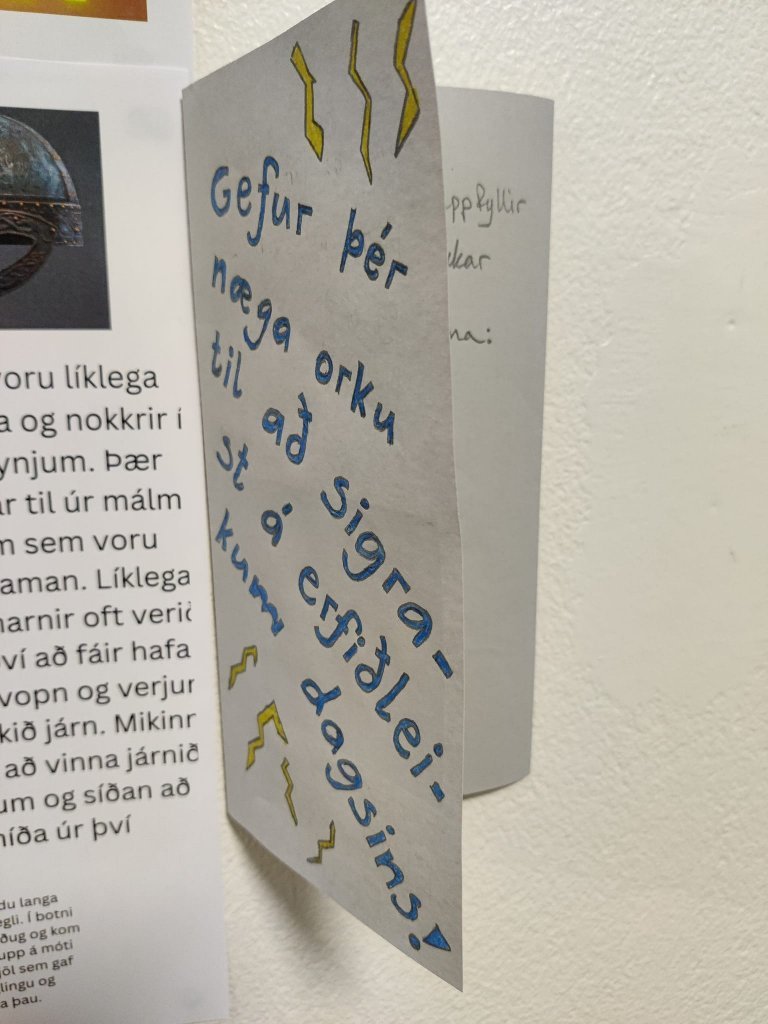 voru líklega
a og nokkrir í
ynjum. Þær
ar til úr málm
m sem voru
aman. Líklega
narnir oft verið
ví að fáir hafa
vopn og verjur
kið járn. Mikinn
að vinna járnið
um og síðan að
níða úr því
du langa
egli. Í botni
ðug og kom
upp á móti
jól sem gaf
lingu og
a þau.
Gefur þér
næga orku
til að sigra-
st á erfiðlei-
kum dagsins!
ppfyllir
kar
na: